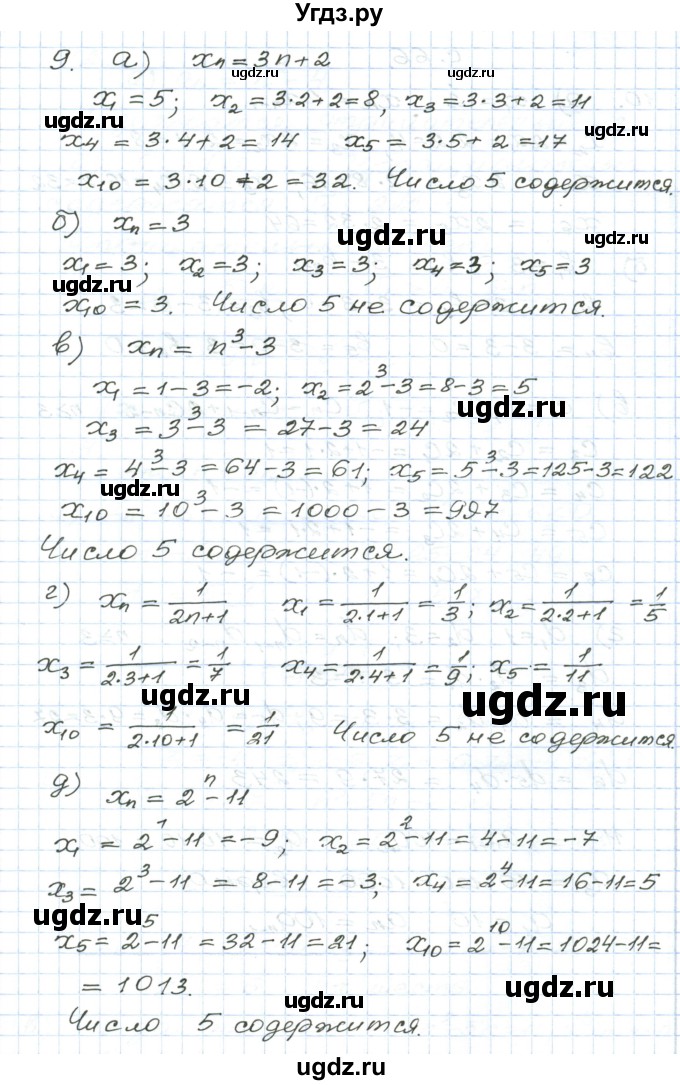 Угдз.ру
9. а) xₙ = 3n + 2
ugdz.ru ugdz.ru
x₁ = 5; x₂ = 3·2+2 = 8, x₃ = 3·3+2 = 11
ugdz.ru
x₄ = 3·4+2 = 14 x₅ = 3·5+2 = 17
x₁₀ = 3·10+2 = 32. Число 5 содержится.
б) xₙ = 3
ugdz.ru ugdz.ru
x₁ = 3; x₂ = 3; x₃ = 3; x₄ = 3; x₅ = 3
ugdz.ru
x₁₀ = 3. Число 5 не содержится.
в) xₙ = n³ - 3
x₁ = 1 - 3 = -2; x₂ = 2³ - 3 = 8 - 3 = 5
ugdz.ru
x₃ = 3³ - 3 = 27 - 3 = 24
x₄ = 4³ - 3 = 64 - 3 = 61; x₅ = 5³ - 3 = 125 - 3 = 122
ugdz.ru
x₁₀ = 10³ - 3 = 1000 - 3 = 997
Число 5 содержится.
г) xₙ = 1/(2n+1) x₁ = 1/(2·1+1) = 1/3; x₂ = 1/(2·2+1) = 1/5
x₃ = 1/(2·3+1) = 1/7 x₄ = 1/(2·4+1) = 1/9; x₅ = 1/11
ugdz.ru ugdz.ru
x₁₀ = 1/(2·10+1) = 1/21 Число 5 не содержится.
д) xₙ = 2ⁿ - 11
x₁ = 2¹ - 11 = -9; x₂ = 2² - 11 = 4 - 11 = -7
x₃ = 2³ - 11 = 8 - 11 = -3; x₄ = 2⁴ - 11 = 16 - 11 = 5
ugdz.ru ugdz.ru
x₅ = 2⁵ - 11 = 32 - 11 = 21; x₁₀ = 2¹⁰ - 11 = 1024 - 11 =
= 1013.
ugdz.ru ugdz.ru
Число 5 содержится.
ugdz.ru